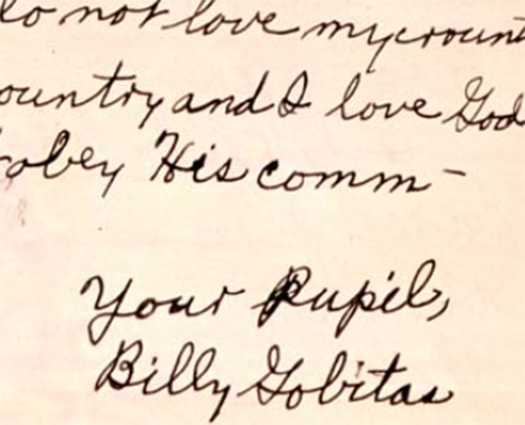 do not love my count
ountry and I love God
obey His comm-
Your Pupil,
Billy Gobitas